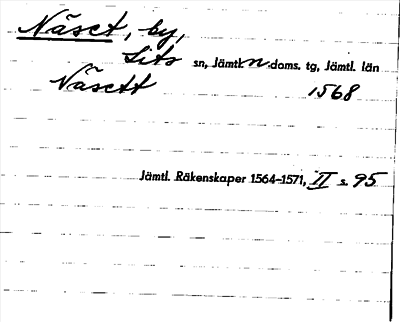 Näset, by,
Lits sn, Jämtl. n. doms. tg, Jämtl. län
Näsett 1568
Jämtl. Räkenskaper 1564-1571, II s. 95